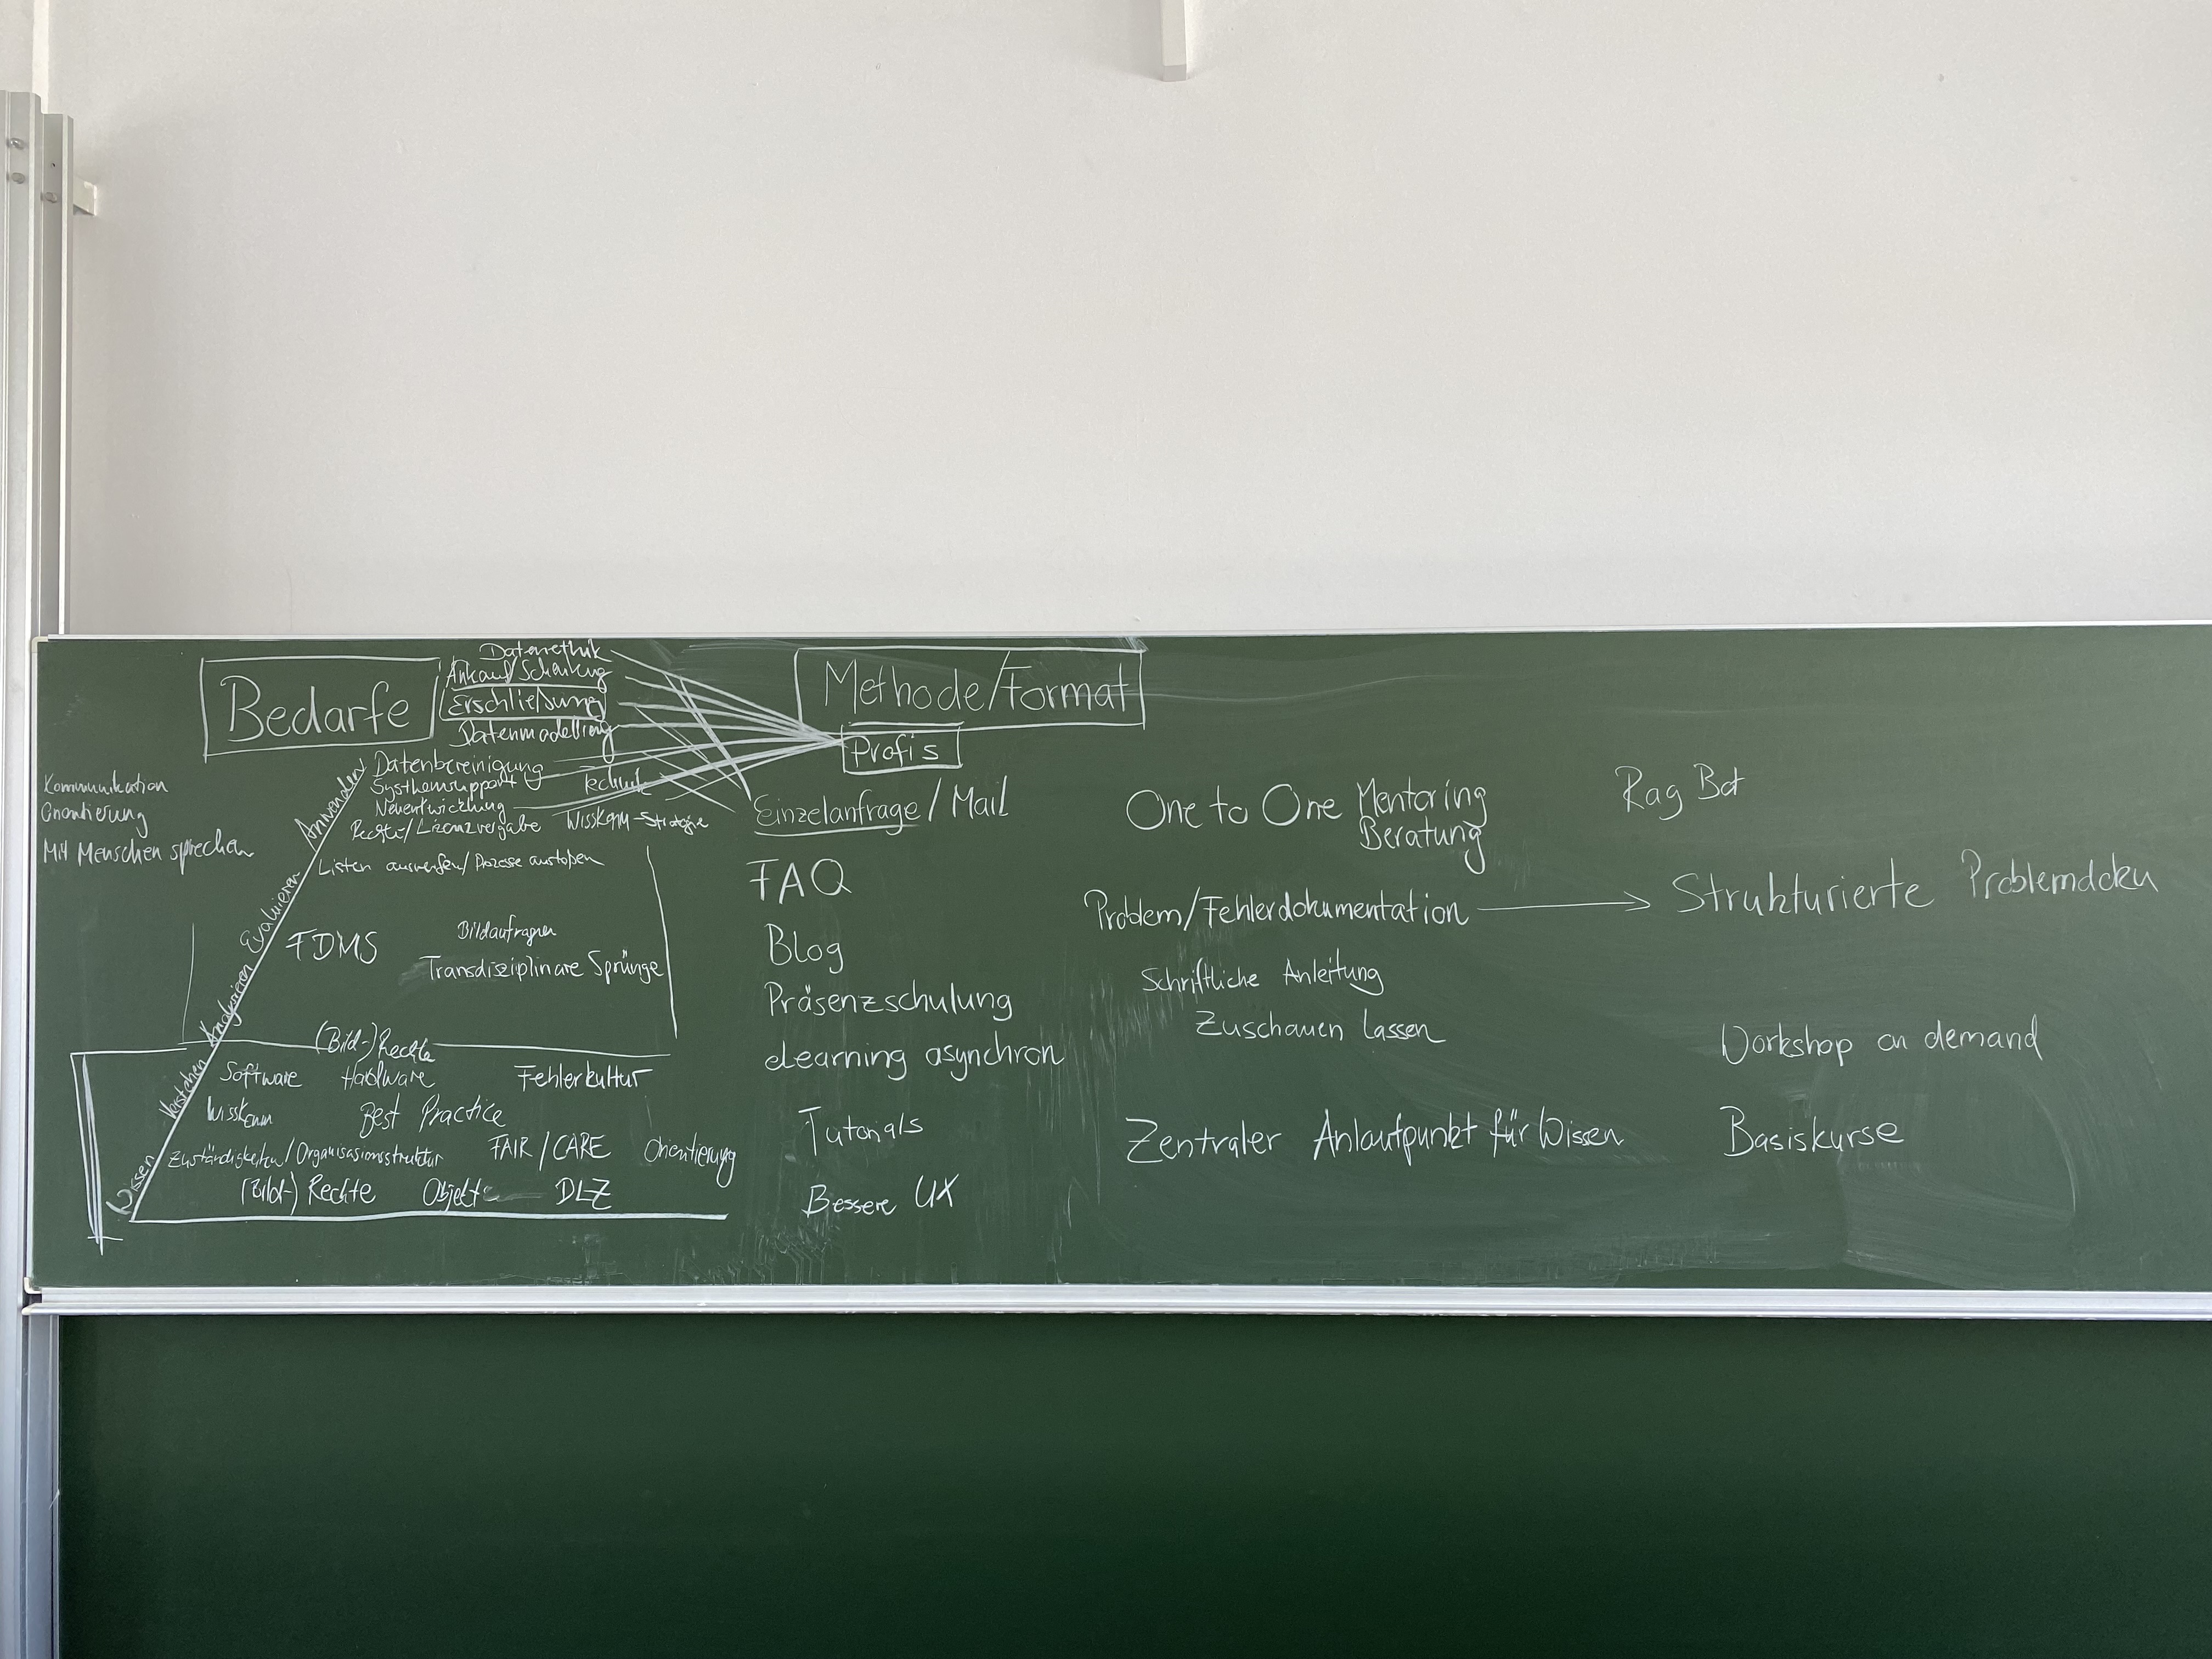 Bedarfe
Datenethik
Ankauf/Schenkung
Erschließung
Datenmodelling
Datenbereinigung
Systhemsupport
Technik
Neuentwicklung
Rechte/Lizenzvergabe
WissKomm-Strategie
Listen auswerfen/Prozesse anstoßen
Kommunikation
Orientierung
Mit Menschen sprechen
Anwenden
Evaluieren
Analysieren
Verstehen
Wissen
FDMS
Bildanfragen
Transdisziplinäre Sprünge
(Bild-)Rechte
Software Hardware Fehlerkultur
WissKomm Best Practice
Zuständigkeiten/Organisasionsstruktur FAIR/CARE Orientierung
(Bild-) Rechte Objekte DLZ
Methode/Format
Profis
Einzelanfrage/Mail
FAQ
Blog
Präsenzschulung
eLearning asynchron
Tutorials
Bessere UX
One to One Mentoring
Beratung
Problem/Fehlerdokumentation
Schriftliche Anleitung
Zuschauen lassen
Zentraler Anlaufpunkt für Wissen
Rag Bot
Strukturierte Problemdoku
Workshop on demand
Basiskurse